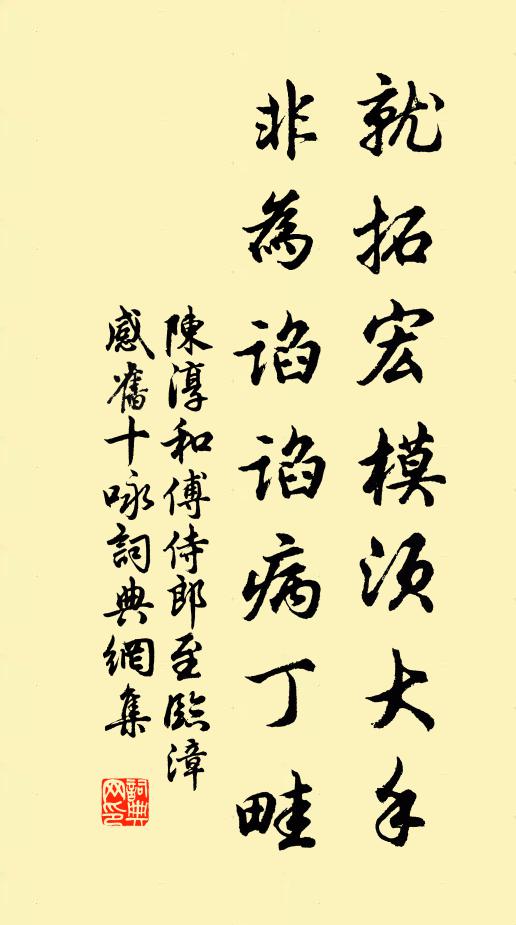 就拓宏模須大手
非為諂諂病丁畦
陳淳和傅侍郎至臨漳
感舊十咏詞典網集
詞典网印